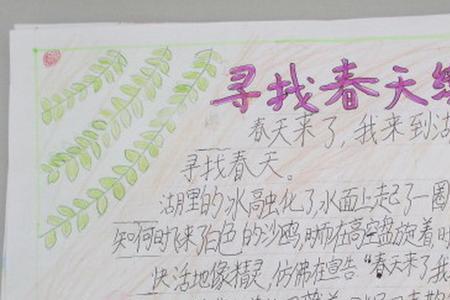 寻找春天
春天来了,我来到湖
寻找春天。
湖里的冰融化了,水面上起了一圈
知何时飞来了白色的沙鸥,时而在高空盘旋着时
快活地像精灵,仿佛在宣告“春天来了我